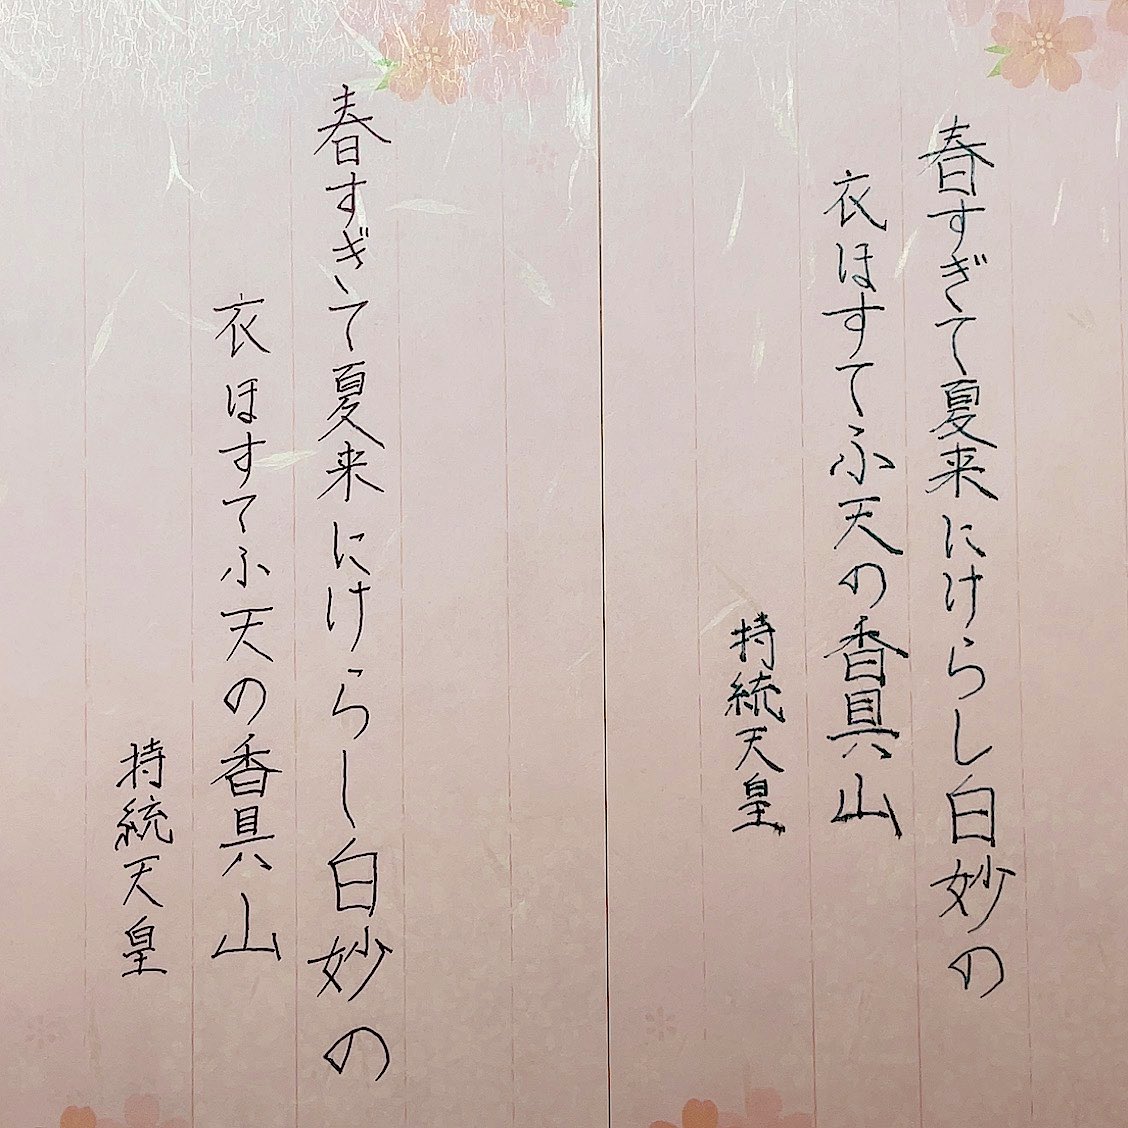 春すぎて夏来にけらし白妙の
衣ほすてふ天の香具山
持統天皇
春すぎて夏来にけらし白妙の
衣ほすてふ天の香具山
持統天皇